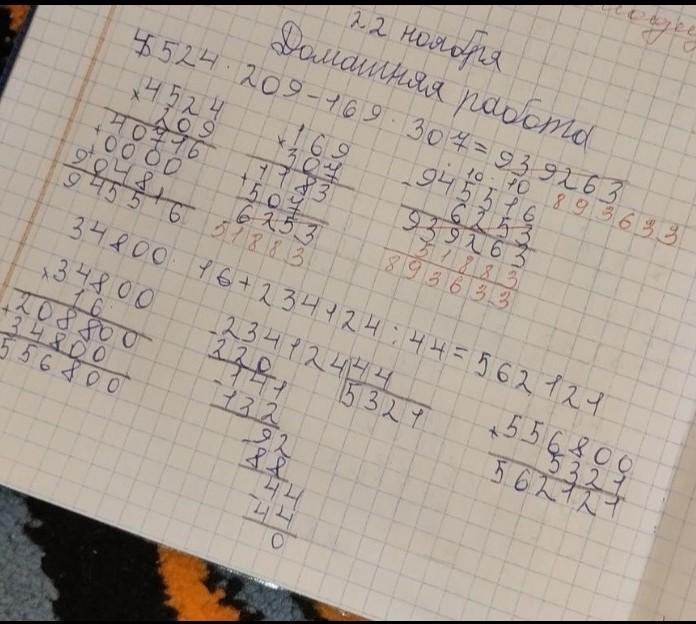 22 ноября
Домашняя работа
4524 · 209 - 169 · 307 = 939263
893633
×4524
209
+40716
0000
9048
945516
×169
307
+1183
507
6253
51883
10 10
-945516
6253
939263
51883
893633
34800 · 16 + 234124 : 44 = 562121
×34800
16
+208800
34800
556800
-234124 44
220 5321
-141
132
-92
88
-44
44
0
×556800
5321
562121